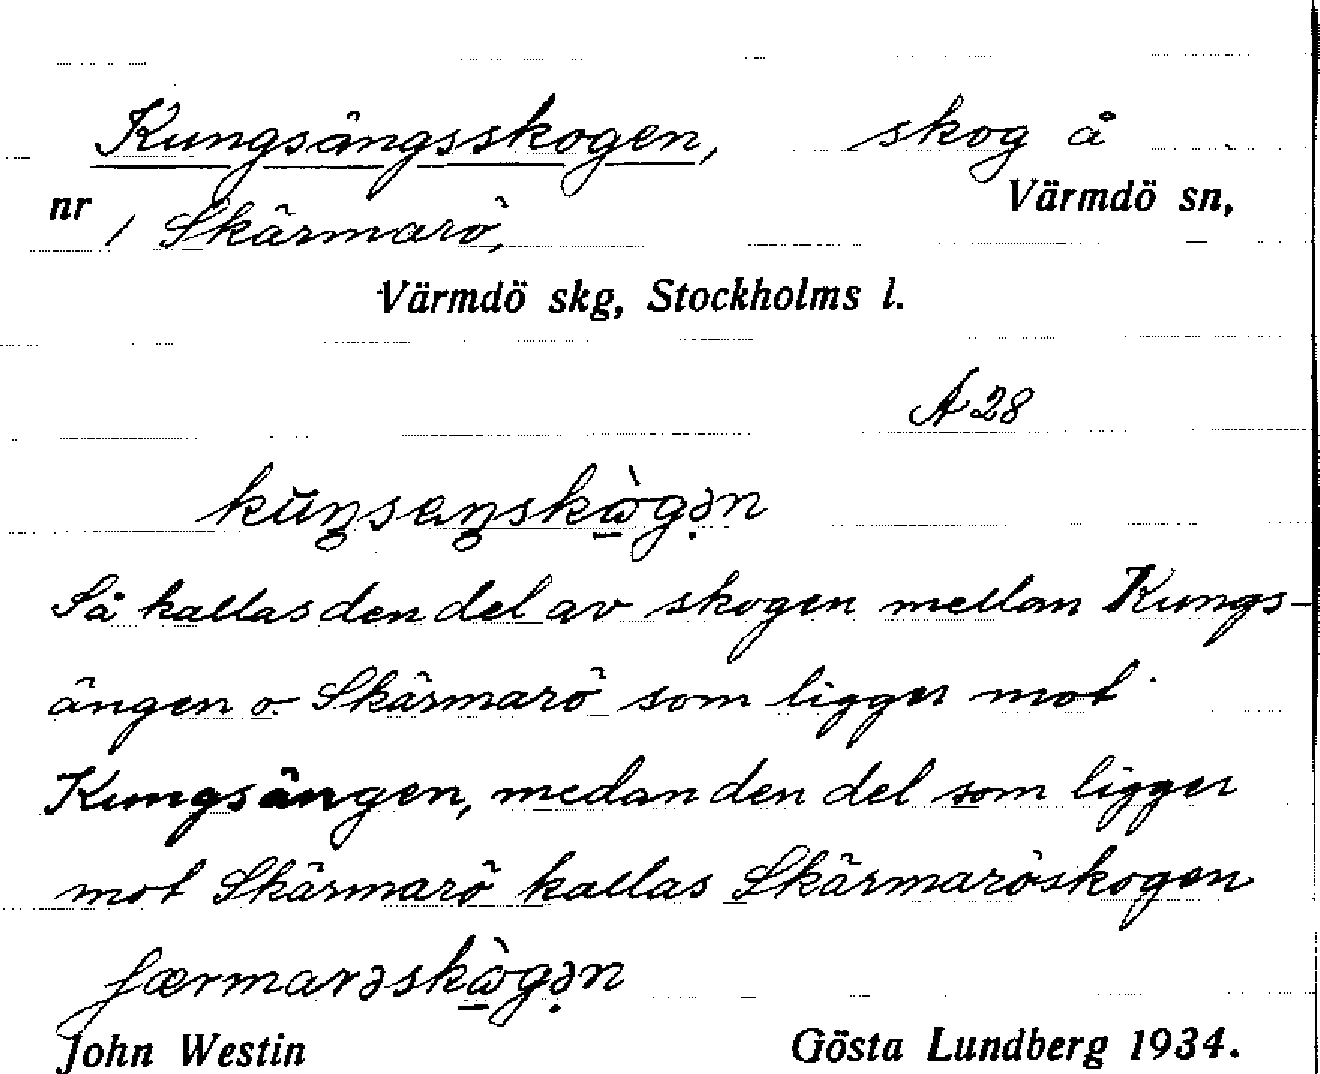 Kungsängsskogen, skog å
Värmdö sn,
nr 1 Skärmarö,
Värmdö skg, Stockholms l.
A 28
kuŋsaŋskògən
Så kallas den del av skogen mellan Kungs-
ängen o Skärmarö som ligger mot
Kungsängen, medan den del som ligger
mot Skärmarö kallas Skärmaröskogen
ʃærmarəskògən
John Westin Gösta Lundberg 1934.